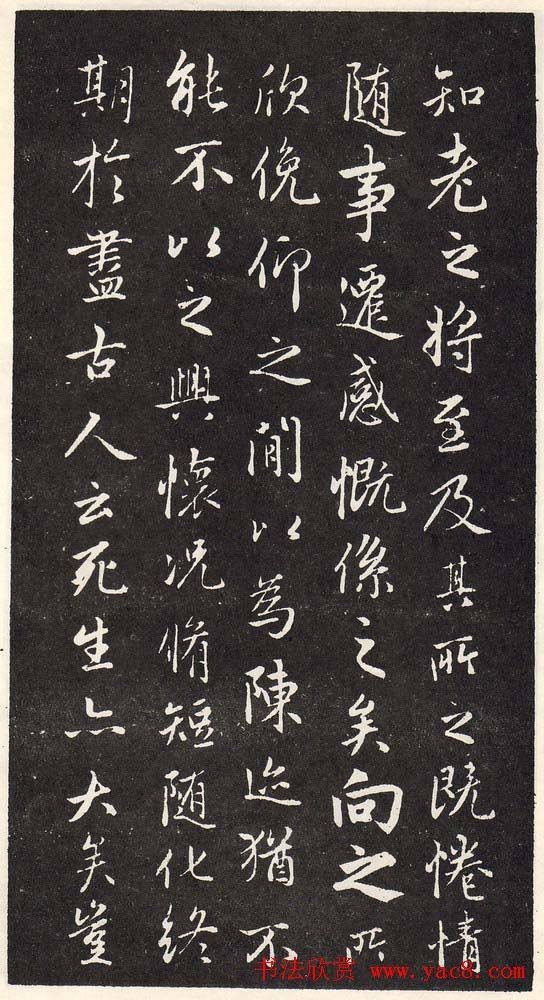 知老之將至及其所之既惓情
隨事遷感慨係之矣向之所
欣俛仰之閒以為陳迹猶不
能不以之興懷況脩短隨化終
期於盡古人云死生亦大矣豈
书法欣赏 www.yac8.com